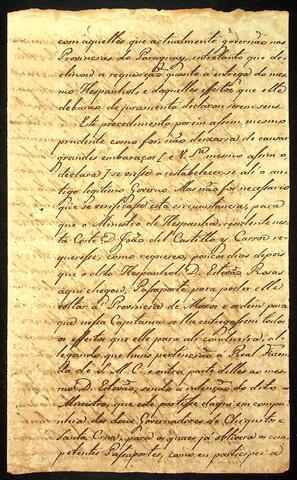 com aquelles que actualmente governão nas
Provincias do Paraguay, entretanto que de-
clinou a requisição quanto á entrega do mes-
mo Hespanhol, e daquelles effeitos que elle
debaixo de juramento declarou serem seus.
Este procedimento porem assim mesmo
prudente como foi, não deixaria de causar
grandes embaraços (e V. Sª mesmo assim o
declara) se viesse a estabelecer-se ali o an-
tigo legitimo Governo. Mas não foi necessario
que se verificasse esta circunstancia, para
que o Ministro de Hespanha, residente nes-
ta Corte D. João del Castillo y Carroz re-
queresse, como requereo, poucos dias depois
que o dito Hespanhol D. Estevão Rosas
aqui chegou, Passaporte para poder elle
voltar á Provincia de Moxos e ordem para
que nessa Capitania se lhe entregassem todos
os effeitos que elle para ali conduzira, al-
legando que huns pertencião á Real Fazen-
da de S. M. C. e outra parte delles ao mes-
mo D. Estevão, sendo a intenção do dito
Ministro, que este partisse daqui em compa-
nhia dos dois Governadores de Chiquitos e
Santa Cruz, para os quaes já obtivera os com-
petentes Passaportes, como eu participei a